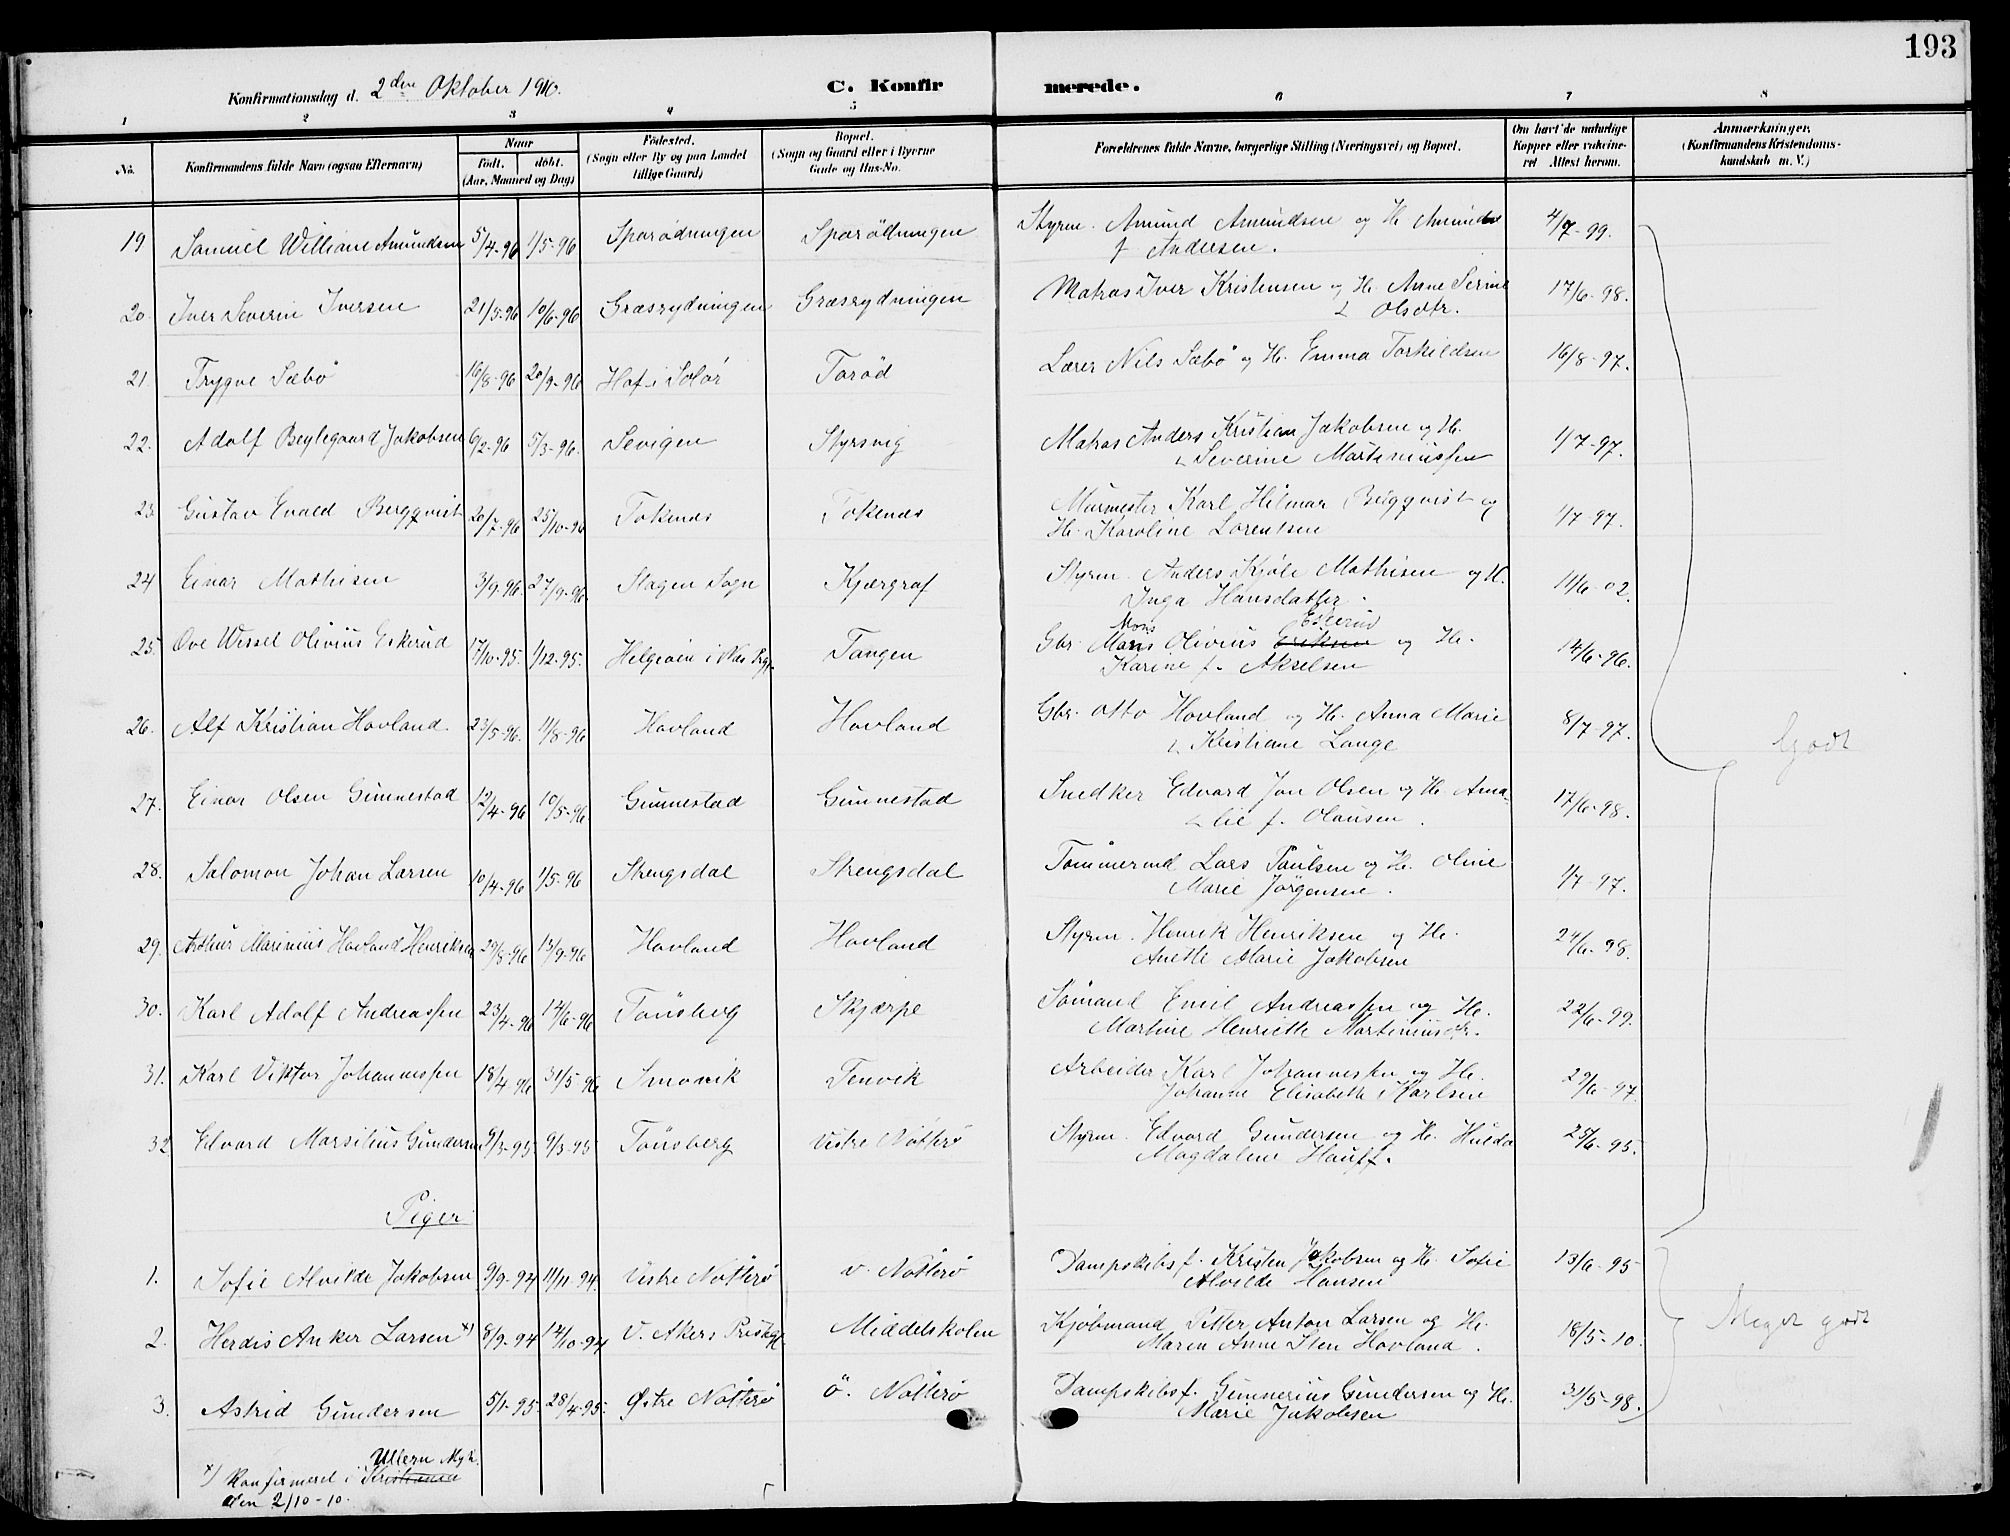 193
Konfirmationsdag d. 2den Oktober 1910.
C. Konfirmerede.
1 2 3 4 5 6 7 8
No. Konfirmandens fulde Navn (ogsaa Efternavn) Naar Født. døbt. (Aar, Maaned og Dag) Fødested. (Sogn eller By og paa Landet tillige Gaard) Bopæl. (Sogn og Gaard eller i Byerne Gade og Hus-No.) Forældrenes fulde Navne, borgerlige Stilling (Næringsvei) og Bopæl. Om havt de naturlige Kopper eller vakcineret Attest herom. Anmærkninger. (Konfirmandens Kristendomskundskab m. V.)
19 Samuel William Amundsen 5/4-96 1/5-96 Sparødningen Sparødningen Styrm. Amund Amundsen og H.
f. Andersen. 4/7-99.
20. Iver Severin Iversen 21/5-96 10/6-96 Græsrydningen Græsrydningen Matros Iver Kristensen og H. Anne Serine
Olsdtr. 17/6-98.
21. Trygve Sæbø 16/8-96 20/9-96 Hof i Solør Torød Lærer Nils Sæbø og H. Emma Torkildsen 16/8-97.
22. Adolf Beylegaard Jakobsen 6/2-96 5/3-96. Sevigen Styrsvig Matros Anders Kristian Jakobsen og H.
Severine Martiniussen 1/7-97.
23. Gustav Evald Bergqvist 26/7-96 25/10-96 Tokenes Tokenes Murmester Karl Hilmar Bergqvist og
H. Karoline Lorentsen 1/7-97.
24 Einar Mathisen 3/9-96. 27/9-96 Slagen Sogn Kjærgraf Styrm. Anders Kjøle Mathisen og H.
Inga Hansdatter. 11/6-02.
25. Ove Wessel Olivius Eskerud 17/10-95. 1/12-95. Helgøen i Nes Pgj. Tangen Gbr. Mons Olivius Eskerud og H.
Karine f. Akselsen 14/6-96.
26. Alf Kristian Hovland. 23/5-96. 11/8-96 Hovland Hovland Gbr. Otto Hovland og H. Anna Marie
Kristiane Lange 8/7-97.
Godt
27. Einar Olsen Gunnestad 12/4-96 10/5-96. Gunnestad Gunnestad Snedker Edvard Jon Olsen og H. Ama-
lie f. Olausen. 17/6-98.
28. Salomon Johan Larsen 10/4-96 1/5-96 Strengsdal Strengsdal Tømmermd Lars Paulsen og H. Oline
Marie Jørgensen. 1/7-97.
29. Arthur Marinius Hovland Henriksen 29/8-96 13/9-96 Hovland Hovland Styrm. Henrik Henriksen og H.
Anette Marie Jakobsen 24/6-98.
30. Karl Adolf Andreassen 23/4-96 14/6-96 Tønsberg Skjærpe Sømand Emil Andreassen og H.
Martine Henriette Martiniusdtr. 22/6-99.
31. Karl Viktor Johannessen 18/4-96 31/5-96 Smovik Tenvik Arbeider Karl Johannessen og H.
Johanne Elisabeth Karlsen 29/6-97.
32 Edvard Marsilius Gundersen 9/3-95. 9/3-95 Tønsberg Vestre Nøtterø Styrm. Edvard Gundersen og H. Hulda
Magdalene Hauff. 25/6-95.
Piger
1. Sofie Alvilde Jakobsen 9/9-94 11/11-94. Vestre Nøtterø v. Nøtterø Dampskibsf. Kristen Jakobsen og H. Sofie
Alvilde Hansen 13/6-95
2. Herdis Anker Larsen x) 8/9-94 14/10-94 V. Akers Prestegj. Middelskolen Kjøbmand Petter Anton Larsen og H.
Maren Anne Sten Hovland. 18/5-10.
Meget godt
3. Astrid Gundersen 5/1-95. 28/4-95. Østre Nøtterø Ø. Nøtterø Dampskibsf. Gunnerius Gundersen og H.
Marie Jakobsen 31/5-98.
Ullern
x) Konfirmeret i Kristiania
den 2/10-10.